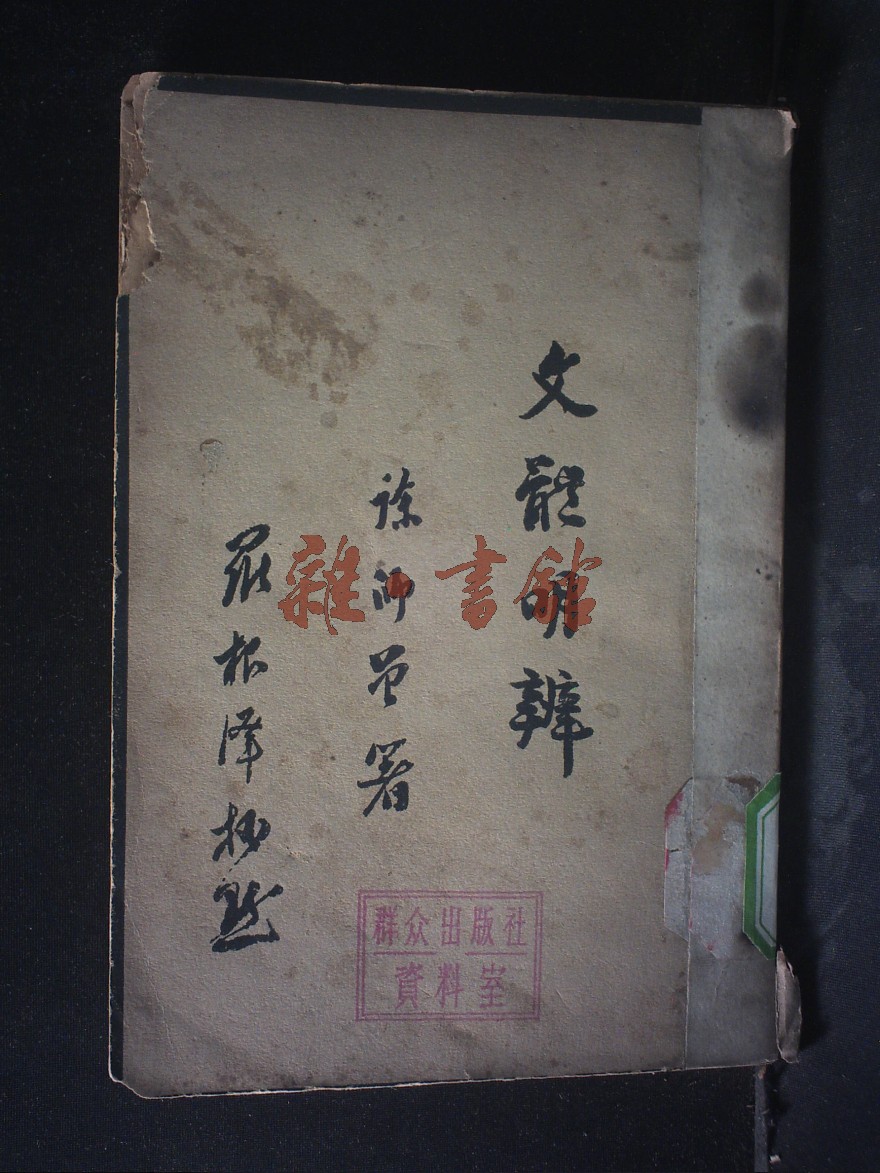 文體明辨
徐師曾著
羅根澤校點
雜·書館
群众出版社
資料室